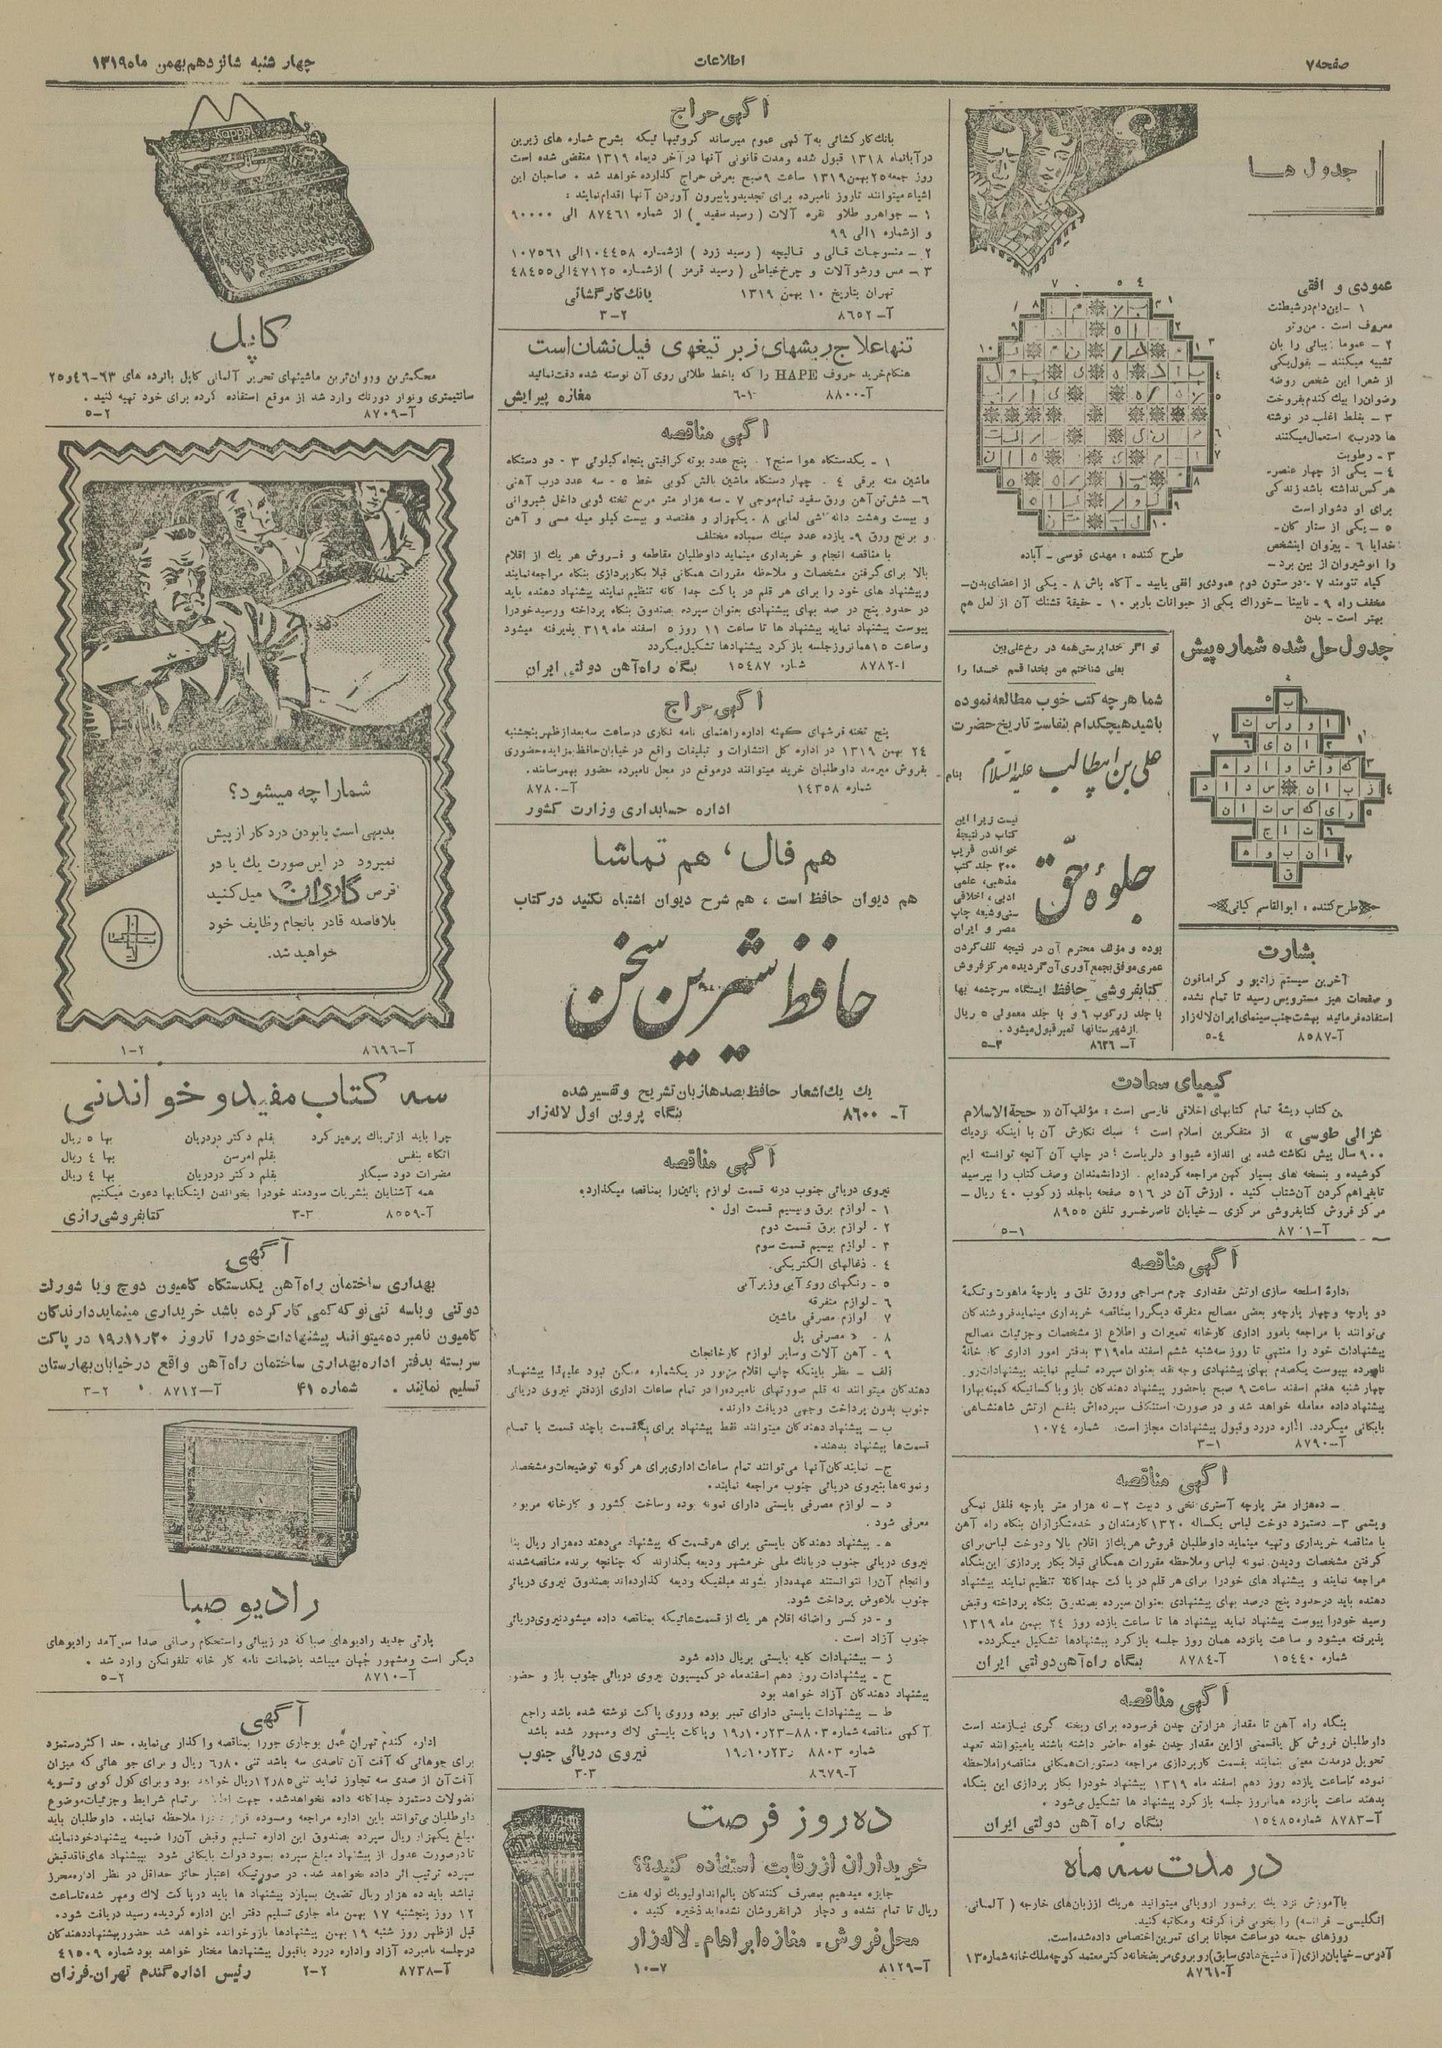 صفحه ۷
اطلاعات
چهار شنبه شانزدهم بهمن ماه ۱۳۱۹
جدول ها
عمودی و افقی
۱ - این دام در شیطنت
معروف است . من و تو
۲ - عموما زیبائی را بان
تشبیه میکنند - بقول یکی
از شعرا این شخص روضه
رضوان را بیک گندم بفروخت
۳ - بغلط اغلب در نوشته
ها «درب» استعمال میکنند
۳ - رطوبت
۴ - یکی از چهار عنصر -
هر کس نداشته باشد زندگی
برای او دشوار است
۵ - یکی از ستارگان -
خدایا ۶ - پیروان اینشخص
را انوشیروان از بین برد -
گیاه تنومند ۷ - در ستون دوم عمودی و افقی یابید - آگاه باش ۸ - یکی از اعضای بدن -
مخفف راه ۹ - نابینا - خوراك یکی از حیوانات باربر ۱۰ - حقیقة قشنك آن از لعل هم
بهتر است - بدن
طرح کننده : مهدی قوسی - آباده
جدول حل شده شماره پیش
طرح کننده : ابوالقاسم کیانی
بشارت
آخرین سیستم رادیو و گرامافون
و صفحات هیز مسترویس رسید تا تمام نشده
استفاده فرمائید بهشت جنب سینمای ایران لاله زار
آ-۸۵۸۷ ۴-۵
تو اگر خدا پرستی همه در رخ علی بین
بعلی شناختم من بخدا قسم خدا را
شما هر چه کتب خوب مطالعه نموده
باشید هیچکدام بنفاست تاریخ حضرت
علی بن ابیطالب علیه السلام بنام
جلوۀ حق
نیست زیرا این
کتاب در نتیجه
خواندن قریب
۳۰۰ جلد کتب
مذهبی، علمی
ادبی، اخلاقی
سنی و شیعه چاپ
مصر و ایران
بوده و مؤلف محترم آن در نتیجه تلف کردن
عمری موفق بجمع آوری آن گردیده مرکز فروش
کتابفروشی حافظ ایستگاه سرچشمه بها
با جلد زرکوب ۶ و با جلد معمولی ۵ ریال
از شهرستانها تمبر قبول میشود .
آ- ۸۶۳۶ ۳-۵
کیمیای سعادت
ین کتاب ریشهٔ تمام کتابهای اخلاقی فارسی است : مؤلف آن « حجةالاسلام
غزالی طوسی » از متفکرین اسلام است ؛ سبك نگارش آن با اینکه نزدیك
۹۰۰ سال پیش نگاشته شده بی اندازه شیوا و دلرباست ؛ در چاپ آن آنچه توانسته ایم
کوشیده و بنسخه های بسیار کهن مراجعه کرده ایم . از دانشمندان وصف کتاب را بپرسید
تا بفراهم کردن آن شتاب کنید . ارزش آن در ۵۱۶ صفحه با جلد زرکوب ۴۰ ریال -
مرکز فروش کتابفروشی مرکزی - خیابان ناصرخسرو تلفن ۸۹۵۵
۱-۵
آگهی مناقصه
داره اسلحه سازی ارتش مقداری چرم سراجی وورق تلق و پارچه ماهوت وتکمهٔ
دو پارچه و چهار پارچه و بعضی مصالح متفرقه دیگر را بمناقصه خریداری مینماید فروشندگان
می توانند با مراجعه بامور اداری کارخانه تعمیرات و اطلاع از مشخصات و جزئیات مصالح
پیشنهادات خود را منتهی تا روز سه شنبه ششم اسفند ماه ۳۱۹ بدفتر امور اداری کارخانهٔ
نامبرده بپیوست یکصدم بهای پیشنهادی وجه نقد بعنوان سپرده تسلیم نمایند پیشنهادات روز
چهار شنبه هفتم اسفند ساعت ۹ صبح باحضور پیشنهاد دهندگان باز و با کسانیکه کمینه بها را
پیشنهاد داده معامله خواهد شد و در صورت استنکاف سپرده اش بنفع ارتش شاهنشاهی
بایگانی میگردد. اداره دررد وقبول پیشنهادات مجاز است: شماره ۱۰۷۴
آ-۸۷۹۰ ۱-۳
آگهی مناقصه
- ده هزار متر پارچه آستری نخی و دبیت ۲- نه هزار متر پارچه فلفل نمکی
و پشمی ۳- دستمزد دوخت لباس یکساله ۱۳۲۰ کارمندان و خدمتگزاران بنگاه راه آهن
با مناقصه خریداری وتهیه مینماید داوطلبان فروش هر یك از اقلام بالا ودوخت لباس برای
گرفتن مشخصات ودیدن نمونه لباس وملاحظه مقررات همگانی قبلا بکار پردازی این بنگاه
مراجعه نمایند و پیشنهاد های خودرا برای هر قلم در پاکت جداگانه تنظیم نمایند پیشنهاد
دهنده باید درحدود پنج درصد بهای پیشنهادی بعنوان سپرده بصندوق بنگاه پرداخته وقبض
رسید خودرا پیوست پیشنهاد نماید پیشنهاد ها تا ساعت یازده روز ۲۴ بهمن ماه ۱۳۱۹
پذیرفته میشود و ساعت پانزده همان روز جلسه باز کرد پیشنهادها تشکیل میگردد.
شماره ۱۵۴۴۰ آ-۸۷۸۴ بنگاه راه آهن دولتی ایران
آگهی مناقصه
بنگاه راه آهن تا مقدار هزارتن چدن فرسوده برای ریخته گری نیازمند است
داوطلبان فروش کل یاقسمتی ازاین مقدار چدن خواه حاضر داشته باشند یا میتوانند تعهد
تحویل درمدت معینی بنمایند بقسمت کارپردازی مراجعه دستورات همگانی مناقصه راملاحظه
نموده تا ساعت یازده روز دهم اسفند ماه ۱۳۱۹ پیشنهاد خودرا بکار پردازی این بنگاه
بدهند ساعت پانزده همانروز جلسه باز کرد پیشنهاد ها تشکیل می شود .
آ-۸۷۸۳ شماره ۱۵۴۸۵ بنگاه راه آهن دولتی ایران
در مدت سه ماه
با آموزش نزد یك پرفسور اروپائی میتوانید هر یك از زبانهای خارجه ( آلمانی.
انگلیسی - فرانسه) را بخوبی فرا گرفته و مکاتبه کنید.
روزهای جمعه دو ساعت مجانا برای تمرین اختصاص داده شده است.
آدرس-خیابان رازی (آقاشیخ هادی سابق) روبروی مریضخانه دکتر معتمد کوچه ملك خانه شماره ۱۳
آ-۸۷۶۱
آگهی حراج
بانك کارگشائی به آگهی عموم میرساند گروئیهائیکه بشرح شماره های زیرین
در آبانماه ۱۳۱۸ قبول شده و مدت قانونی آنها در آخر دیماه ۱۳۱۹ منقضی شده است
روز جمعه ۲۵ بهمن ۱۳۱۹ ساعت ۹ صبح بمعرض حراج گذارده خواهد شد . صاحبان این
اشیاء میتوانند تا روز نامبرده برای تجدید و یا بیرون آوردن آنها اقدام نمایند :
۱ - جواهر و طلا و نقره آلات ( رسید سفید ) از شماره ۸۷۴۶۱ الی ۹۰۰۰۰
و از شماره ۱ الی ۹۹
۲ - منسوجات قالی و قالیچه ( رسید زرد ) از شماره ۱۰۴۴۵۸ الی ۱۰۷۵۶۱
۳ - مس ورشو آلات و چرخ خیاطی ( رسید قرمز ) از شماره ۴۷۱۲۵ الی ۴۸۴۵۵
تهران بتاریخ ۱۰ بهمن ۱۳۱۹ بانك کارگشائی
آ-۸۶۵۲ ۲-۳
تنها علاج ریشهای زبر تیغهی فیل نشان است
هنگام خرید حروف HAPE را که باخط طلائی روی آن نوشته شده دقت نمائید
آ-۸۸۰۰ ۱-۶ مغازه پیرایش
آگهی مناقصه
۱ - یکدستگاه هوا سنج ۲ . پنج عدد بوته گرافیتی پنجاه کیلوئی ۳ - دو دستگاه
ماشین مته برقی ۴ - چهار دستگاه ماشین بالش کوبی خط ۵ - سه عدد درب آهنی
۶- شش تن آهن ورق سفید تمام موجی ۷ - سه هزار متر مربع تخته لوبی داخل شیروانی
و بیست وهشت دانه کاشی لعابی ۸ . یکهزار و هفتصد و بیست کیلو میله مسی و آهن
و برنج ورق ۹- یازده عدد سنك سمباده مختلف
با مناقصه انجام و خریداری مینماید داوطلبان مقاطعه و فروش هر یك از اقلام
بالا برای گرفتن مشخصات و ملاحظه مقررات همگانی قبلا بکارپردازی بنگاه مراجعه نمایند
و پیشنهاد های خود را برای هر قلم در پاکت جدا گانه تنظیم نمایند پیشنهاد دهنده باید
در حدود پنج در صد بهای پیشنهادی بعنوان سپرده بصندوق بنگاه پرداخته ورسید خودرا
پیوست پیشنهاد نماید پیشنهاد ها تا ساعت ۱۱ روز ۵ اسفند ماه ۳۱۹ پذیرفته میشود
وساعت ۱۵ همانروز جلسه باز کرد پیشنهادها تشکیل میگردد
۸۷۸۲-آ شماره ۱۵۴۸۷ بنگاه راه آهن دولتی ایران
آگهی حراج
پنج تخته فرشهای کهنه اداره راهنمای نامه نگاری در ساعت سه بعد از ظهر پنجشنبه
۲۴ بهمن ۱۳۱۹ در اداره کل انتشارات و تبلیغات واقع در خیابان حافظ بمزایده حضوری
بفروش میرسد داوطلبان خرید میتوانند درموقع در محل نامبرده حضور بهمرسانند.
شماره ۱۴۳۵۸ آ-۸۷۸۰
اداره حسابداری وزارت کشور
هم فال ، هم تماشا
هم دیوان حافظ است ، هم شرح دیوان اشتباه نکنید در کتاب
حافظ شیرین سخن
یك یك اشعار حافظ بصدها زبان تشریح و تفسیر شده
آ- ۸۶۰۰ بنگاه پروین اول لاله زار
آگهی مناقصه
نیروی دریائی جنوب درنه قسمت لوازم پائین را بمناقصه میگذارد.
۱ - لوازم برق وبیسیم قسمت اول
۲ - لوازم برق قسمت دوم
۳ - لوازم بیسیم قسمت سوم
۴ - ذغالهای الکتریکی.
۵ - رنگهای روی آبی و زیر آبی
۶ - لوازم متفرقه
۷ - لوازم مصرفی ماشین
۸ - « مصرفی پل
۹ - آهن آلات وسایر لوازم کارخانجات
الف - نظر باینکه چاپ اقلام مزبور در یکشماره ممکن نبود علیهذا پیشنهاد
دهندگان میتوانند نه قلم صورتهای نامبرده را در تمام ساعات اداری ازدفتر نیروی دریائی
جنوب بدون پرداخت وجهی دریافت دارند.
ب - پیشنهاد دهندگان میتوانند فقط پیشنهاد برای یکقسمت یا چند قسمت یا تمام
قسمت ها پیشنهاد بدهند.
ج- نمایندگان آنها می توانند تمام ساعات اداری برای هر گونه توضیحات و مشخصات
و نمونه ها بنیروی دریائی جنوب مراجعه نمایند.
د - لوازم مصرفی بایستی دارای نمونه بوده وساخت کشور و کارخانه مربوطه
معرفی شود .
ه - پیشنهاد دهندگان بایستی برای هر قسمت که پیشنهاد می دهند ده هزار ریال بنام
نیروی دریائی جنوب در بانك ملی خرمشهر ودیعه بگذارند که چنانچه برنده مناقصه شدند
وانجام آن را نتوانستند عهده دار بشوند مبلغیکه ودیعه گذارده اند بصندوق نیروی دریائی
جنوب بلاعوض پرداخت شود.
و - در کسر و اضافه اقلام هر یك از قسمت هائیکه بمناقصه داده میشود نیروی دریائی
جنوب آزاد است .
ز - پیشنهادات کلیه بایستی بریال داده شود
ح - پیشنهادات روز دهم اسفند ماه در کمیسیون نیروی دریائی جنوب باز و حضور
پیشنهاد دهندگان آزاد خواهد بود
ط - پیشنهادات بایستی دارای تمبر بوده وروی پاکت نوشته شده باشد راجع
آگهی مناقصه شماره ۸۸۰۳-۱۹٫۱۰٫۲۳ و پاکات بایستی لاك وممهور شده باشد
شماره ۸۸۰۳ - ۱۹٫۱۰٫۲۳ نیروی دریائی جنوب
آ-۸۶۷۹ ۳-۳
ده روز فرصت
خریداران از رقابت استفاده کنید؟؟
جایزه میدهیم بمصرف کنندگان پالم انداولیویك لوله هفت
ریال تا تمام نشده و دچار گرانفروشان نشده اید ذخیره کنید .
محل فروش. مغازه ابراهام . لاله زار
آ-۸۱۲۹ ۷-۱۰
kappel
کاپل
محکمترین وروان ترین ماشینهای تحریر آلمانی کاپل باارده های ۶۳-۴۶ و ۲۵
سانتیمتری و نوار دورنك وارد شد از موقع استفاده کرده برای خود تهیه کنید .
آ-۸۷۰۹ ۲-۵
شما را چه میشود؟
بدیهی است با بودن درد کار از پیش
نمیرود در این صورت یك یا دو
قرص گاردان میل کنید
بلافاصله قادر بانجام وظایف خود
خواهید شد.
BAYER
آ-۸۶۹۶ ۲-۱
سه کتاب مفید و خواندنی
چرا باید از تریاك پرهیز کرد بقلم دکتر دردریان بها ۵ ریال
اتکاء بنفس بقلم امرسن بها ۴ ریال
مضرات دود سیگار بقلم دکتر دردریان بها ۴ ریال
همه آشنایان بنشریات سودمند خودرا بخواندن اینکتابها دعوت میکنیم
آ-۸۵۵۹ ۳-۳ کتابفروشی رازی
آگهی
بهداری ساختمان راه آهن یکدستگاه کامیون دوج و یا شورلت
دو تنی و یا سه تنی نو که کمی کار کرده باشد خریداری مینماید دارندگان
کامیون نامبرده میتوانند پیشنهادات خودرا تا روز ۱۹٫۱۱٫۲۰ در پاکت
سر بسته بدفتر اداره بهداری ساختمان راه آهن واقع در خیابان بهارستان
تسلیم نمایند . شماره ۴۱ آ-۸۷۱۲ ۲-۳
رادیو صبا
پارتی جدید رادیوهای صبا که در زیبائی واستحکام رسانی صدا سر آمد رادیوهای
دیگر است ومشهور جهان میباشد باضمانت نامه کارخانه تلفونکن وارد شد .
آ-۸۷۱۰ ۲-۵
آگهی
اداره گندم تهران عمل بوجاری جورا بمناقصه واگذار می نماید. حد اکثر دستمزد
برای جوهائی که آفت آن تاصدی سه باشد تنی ۶٫۸۰ ریال و برای جو هائی که میزان
آفت آن از صدی سه تجاوز نماید تنی ۱۲٫۸۵ ریال خواهد بود وبرای کول کوبی و تسویه
فضولات دستمزد جداگانه داده نخواهد شد. جهت اطلاع بر تمام شرایط و جزئیات موضوع
داوطلبان می توانند باین اداره مراجعه ومسوده قرارداد را ملاحظه نمایند. داوطلبان باید
مبلغ یکهزار ریال سپرده بصندوق این اداره تسلیم وقبض آن را ضمیمه پیشنهاد خود نمایند
تا درصورت عدول از پیشنهاد مبلغ سپرده بسود دولت بایگانی شود بپیشنهاد های فاقد قبض
سپرده ترتیب اثر داده نخواهد شد. در صورتیکه اعتبار حائز حداقل در نظر اداره محرز
نباشد باید ده هزار ریال تضمین بسپارد پیشنهاد ها باید درپاکت لاك ومهر شده تا ساعت
۱۲ روز پنجشنبه ۱۷ بهمن ماه جاری تسلیم دفتر این اداره گردیده رسید دریافت شود.
قبل از ظهر روز شنبه ۱۹ بهمن پیشنهادها باز و خوانده خواهد شد حضور پیشنهاد دهندگان
درجلسه نامبرده آزاد و اداره دررد یا قبول پیشنهادها مختار خواهد بود شماره ۴۱۵۰۹
آ-۸۷۳۸ ۲-۲ رئیس اداره گندم تهران. فرزان